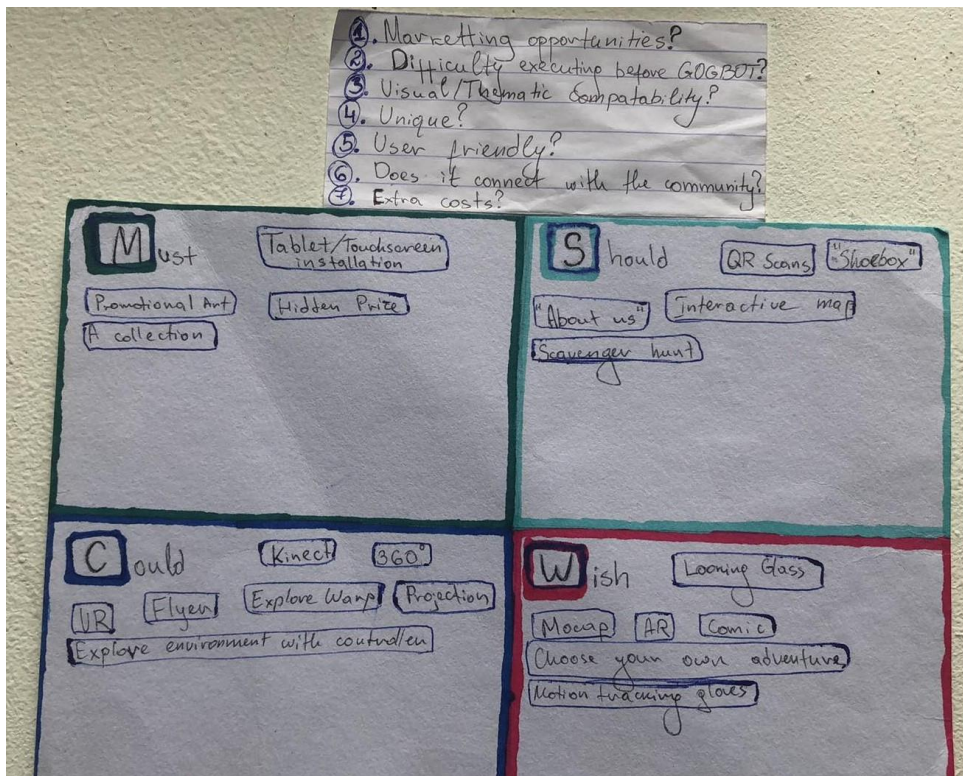 1. Marketting opportunities?
2. Difficulty executing before GOGBOT?
3. Visual/Thematic Compatability?
4. Unique?
5. User friendly?
6. Does it connect with the community?
7. Extra costs?
Must
Tablet/Touchscreen
installation
Promotional Art
Hidden Prize
A collection
Should
QR Scans
"Shoebox"
"About us"
Interactive map
Scavenger hunt
Could
Kinect
360°
VR
Flyer
Explore Warp
Projection
Explore environment with controller
Wish
Looking Glass
Mocap
AR
Comic
Choose your own adventure
Motion tracking gloves